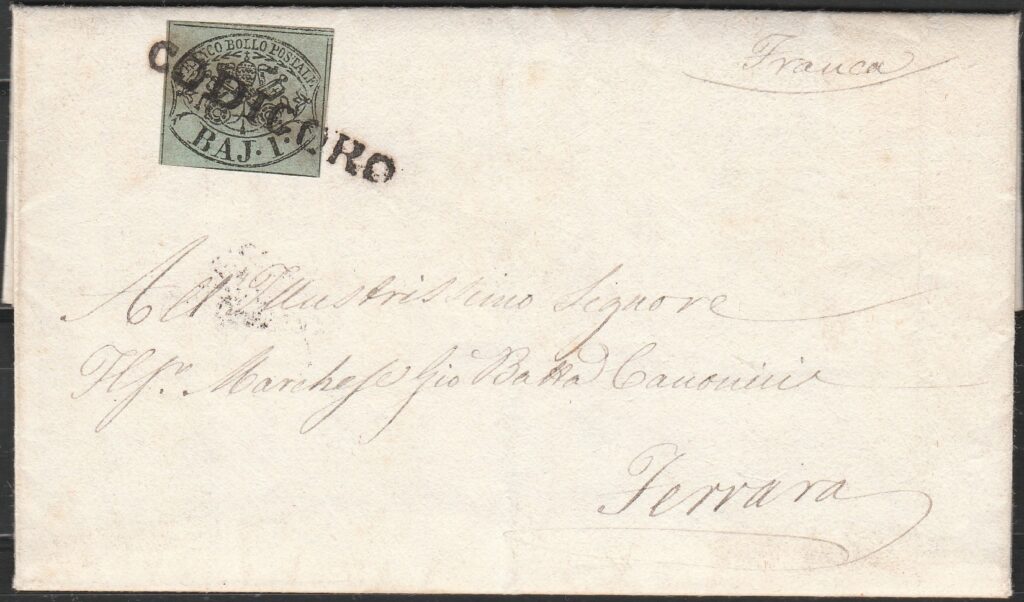 FRANCO BOLLO POSTALE
BAJ. 1.
CODIGORO
Franca
All Illustrissimo Signore
Il Sr. Marchese Gio Batta Canonici
Ferrara